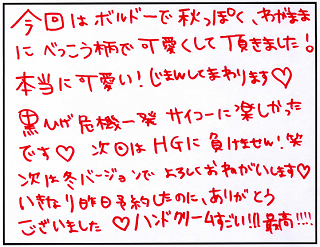 今回はボルドーで秋っぽく、わがまま
にべっこう柄で可愛くして頂きました!
本当に可愛い!じまんしてまわります♡
黒ひげ危機一発 サイコーに楽しかった
です♡ 次回はHGに負けません!笑
次は冬バージョンで よろしくおねがいします♡
いきなり昨日予約したのに、ありがとう
ございました ♡ハンドクリームすごい!!最高!!!!